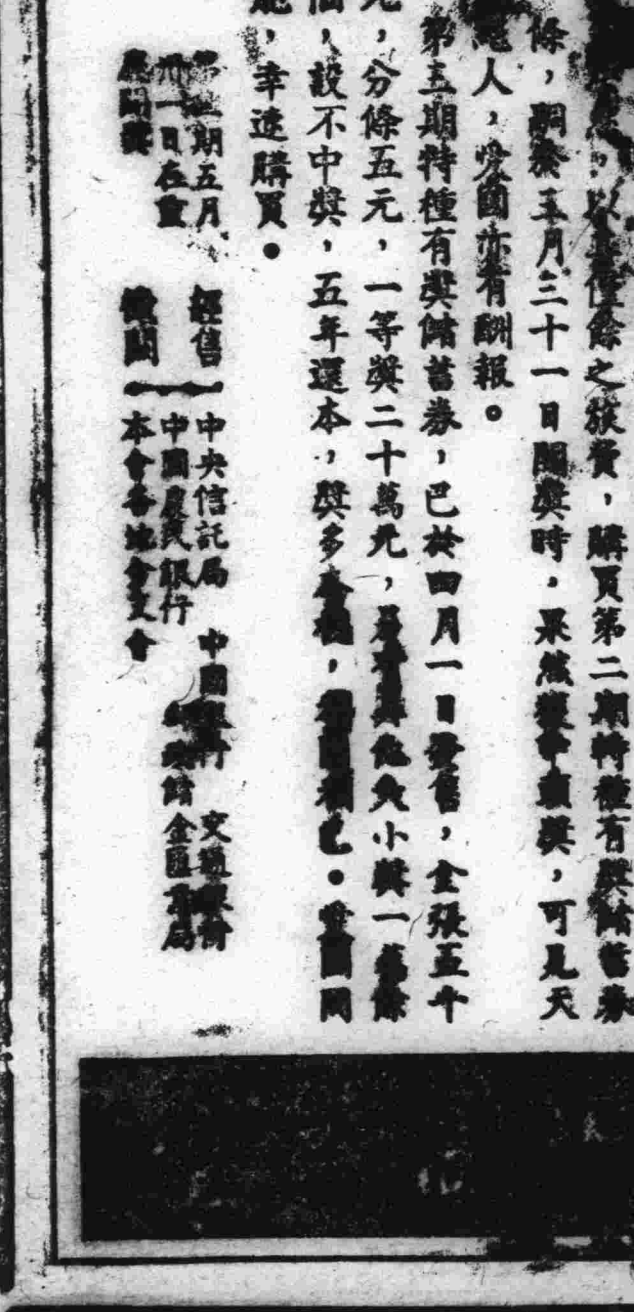 以其僅餘之旅費，購買第二期特種有獎儲蓄券
條，嗣於五月三十一日開獎時，果然獲中頭獎，可見天
人，愛國亦有酬報。
第五期特種有獎儲蓄券，已於四月一日發售，全張五十
元，分條五元，一等獎二十萬元，其他大小獎一萬餘
個，設不中獎，五年還本，獎多。愛國同
，幸速購買。
第五期五月
卅一日在重
慶開獎
經售
機關
中央信託局 中國銀行 交通銀行
中國農民銀行 郵政儲金匯業局
本會各地會支會